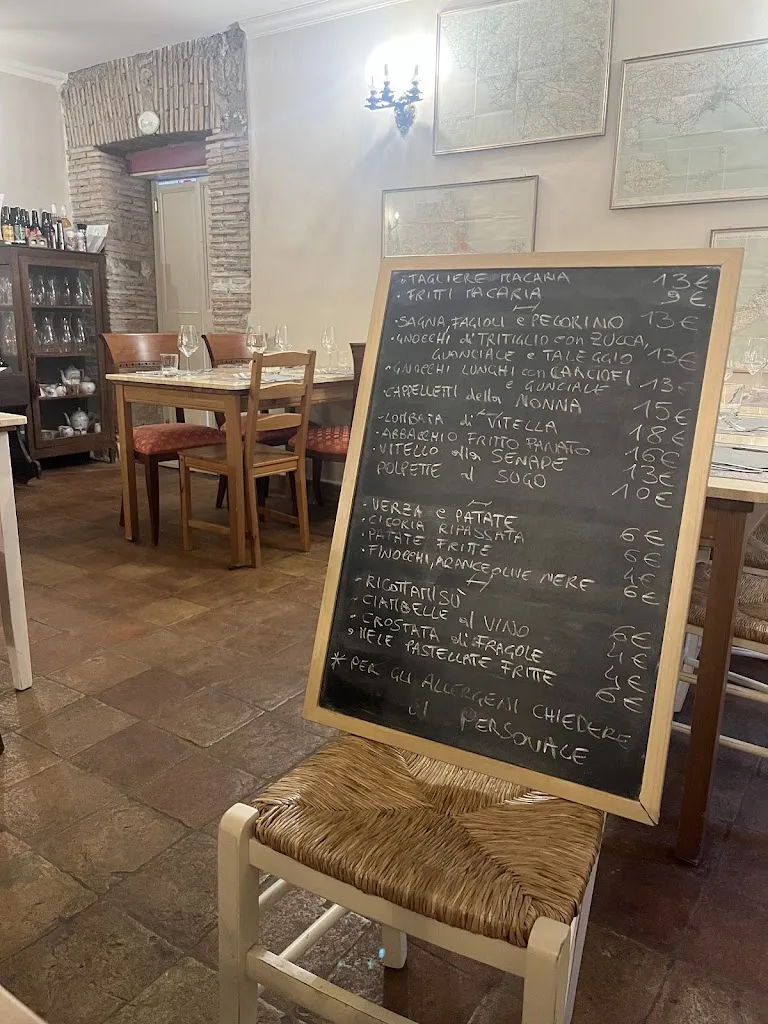 • TAGLIERE MACARIA 13€
• FRITTI MACARIA 9€
• SAGNA, FAGIOLI e PECORINO 13€
• GNOCCHI d'TRITIGLIO con ZUCCA,
GUANCIALE e TALEGGIO 13€
• GNOCCHI LUNGHI con CARCIOFI
e GUNCIALE 13€
CAPPELLETTI della NONNA 15€
• LOMBATA di VITELLA 18€
• ABBACCHIO FRITTO PANATO 16€
• VITELLO alla SENAPE 13€
POLPETTE al SUGO 10€
• VERZA e PATATE 6€
• CICORIA RIPASSATA 6€
• PATATE FRITTE 4€
• FINOCCHI, ARANCE, OLIVE NERE 6€
• RICOTTAMISÙ 6€
• CIAMBELLE al VINO 4€
• CROSTATA di FRAGOLE 4€
• MELE PASTELLATE FRITTE 6€
* PER GLI ALLERGENI CHIEDERE
al PERSONALE